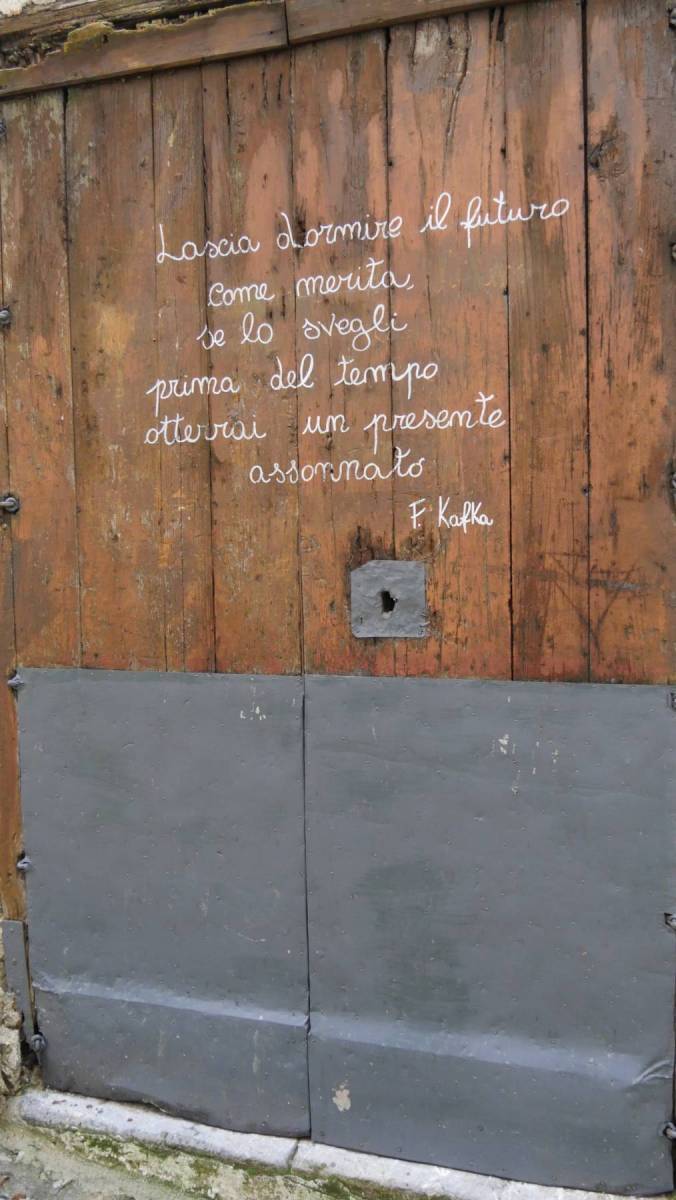 Lascia dormire il futuro
come merita,
se lo svegli
prima del tempo
otterrai un presente
assonnato
F. Kafka